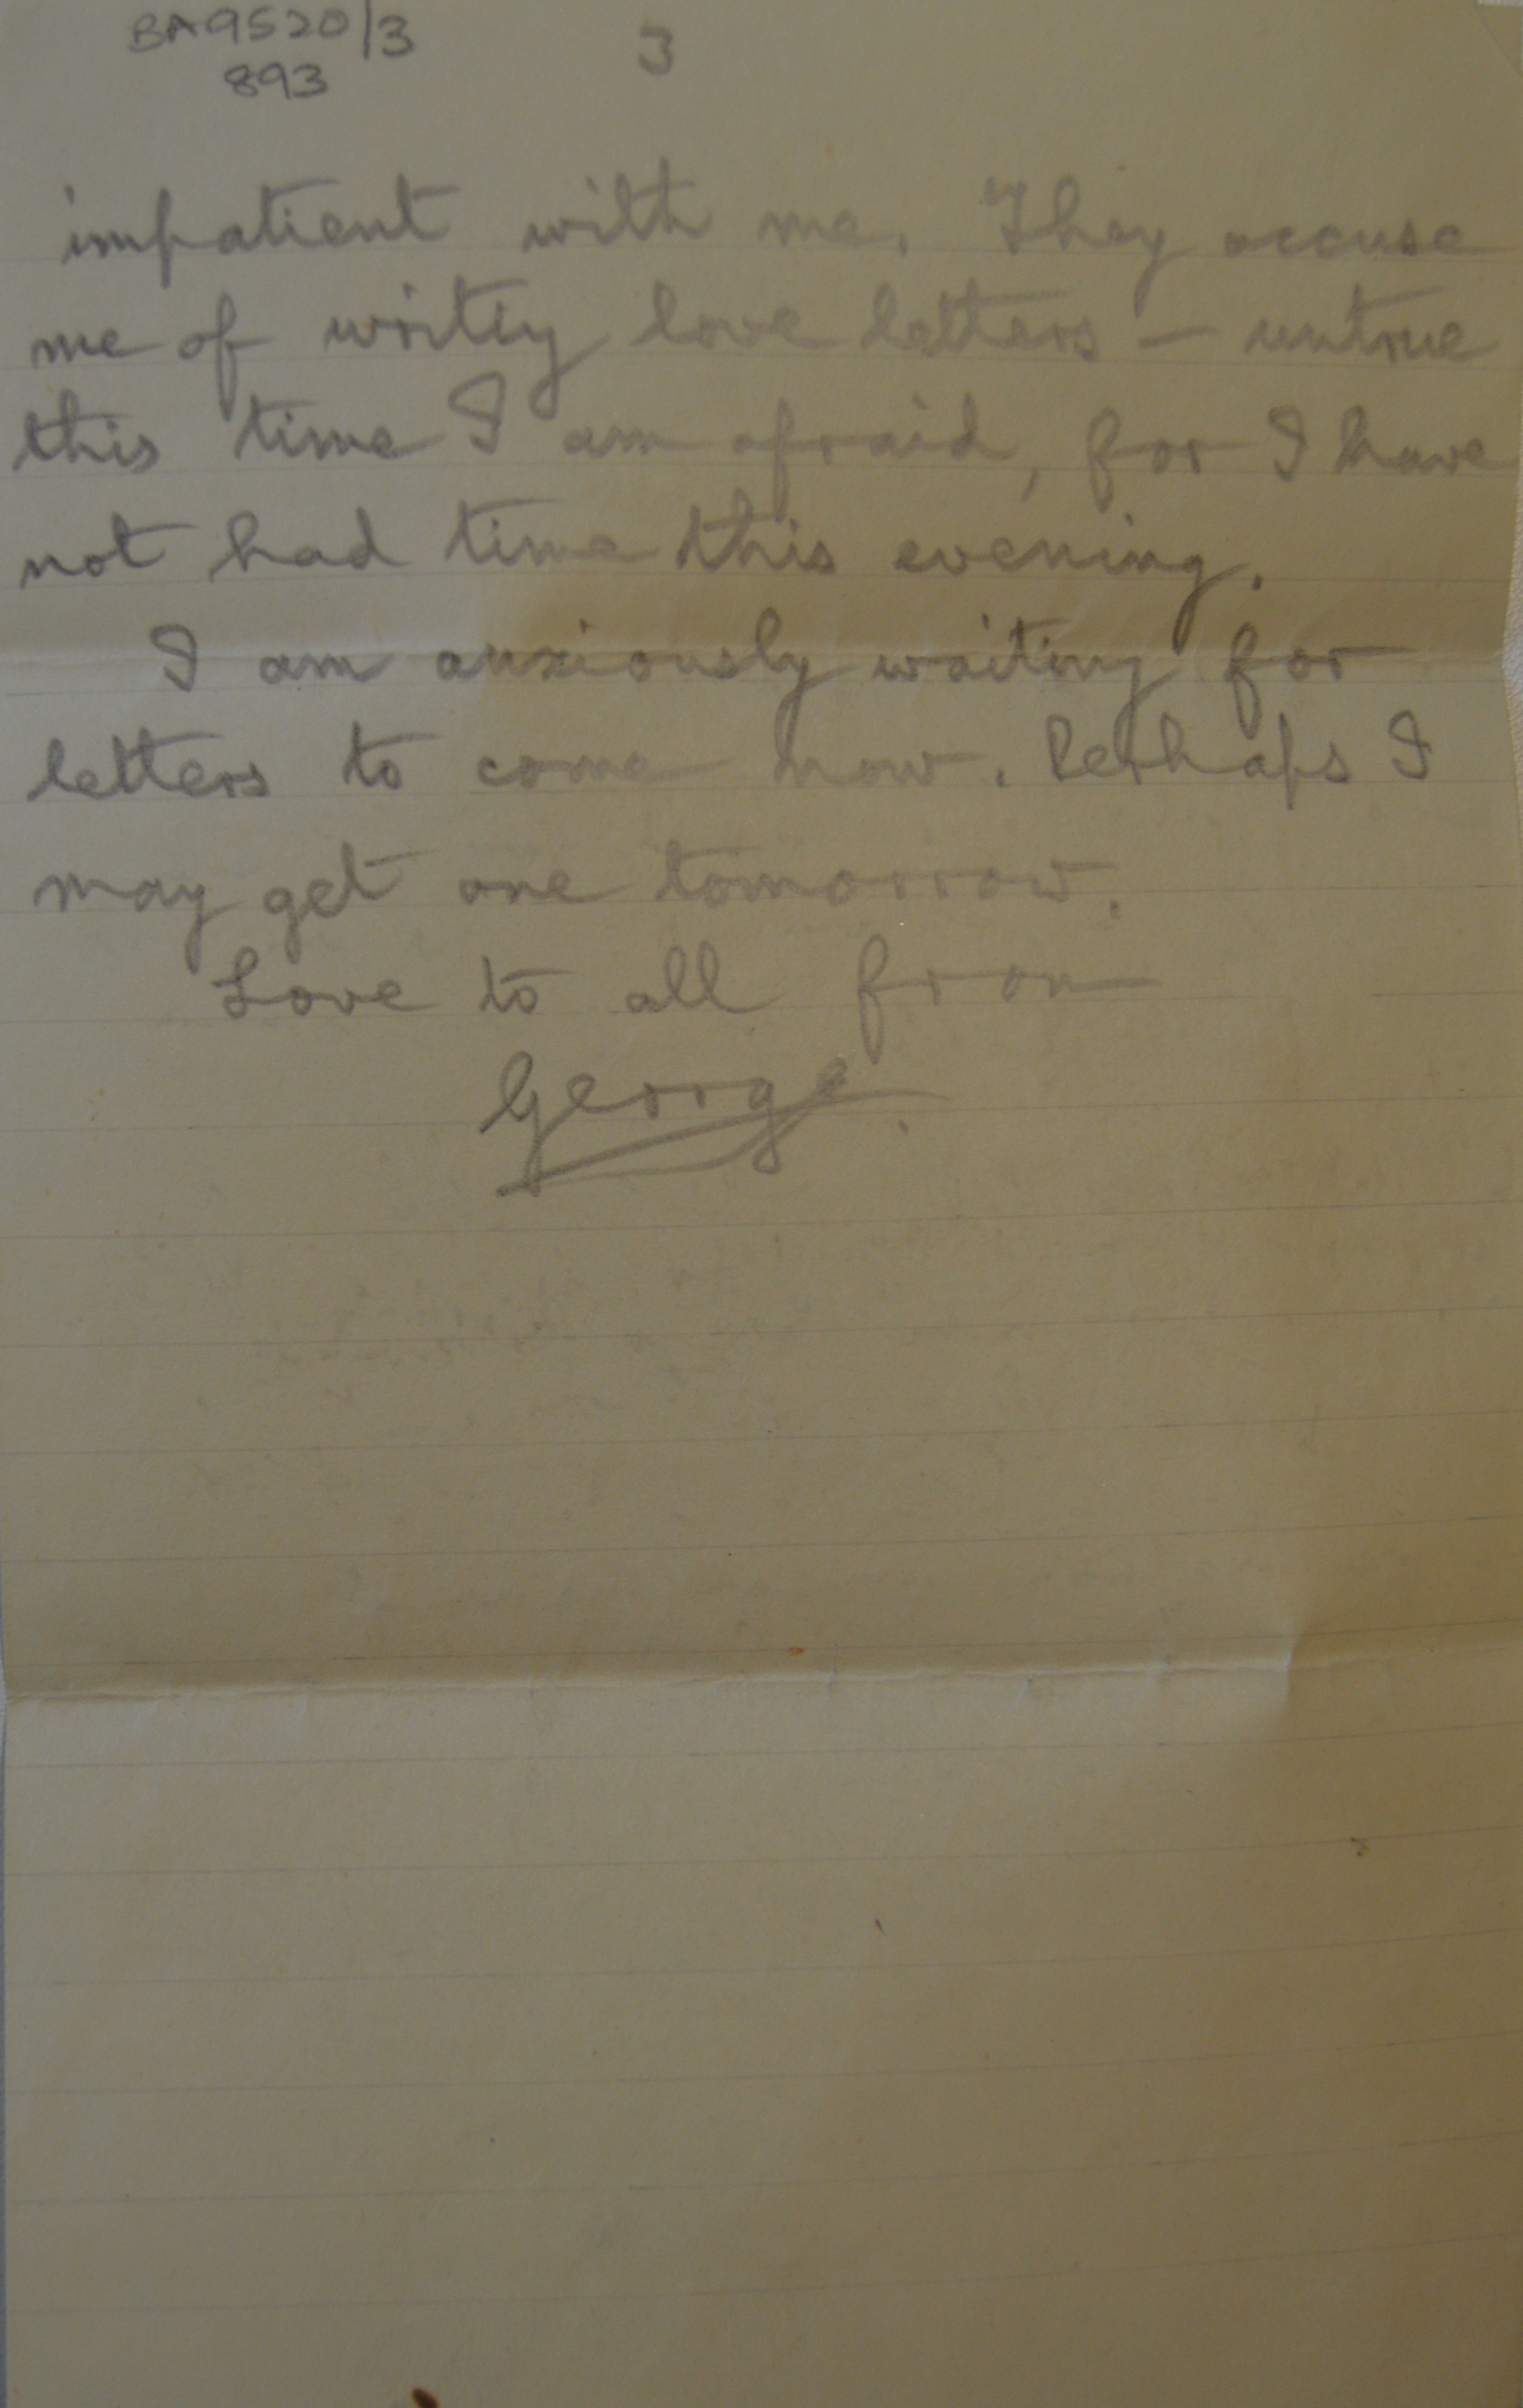 BA9520/3
893
3
impatient with me. They accuse
me of writing love letters – untrue
this time I am afraid, for I have
not had time this evening.
I am anxiously waiting for
letters to come now. Perhaps I
may get one tomorrow.
Love to all from
George.